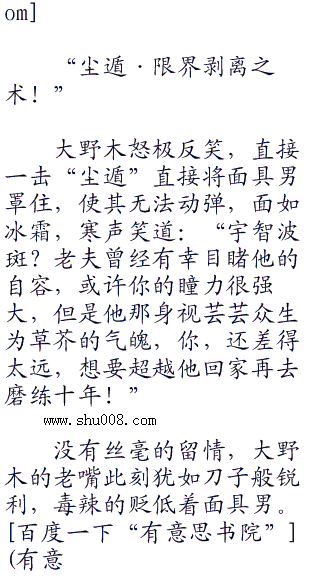 om]
“尘遁·限界剥离之
术！”
大野木怒极反笑，直接
一击“尘遁”直接将面具男
罩住，使其无法动弹，面如
冰霜，寒声笑道：“宇智波
斑？老夫曾经有幸目睹他的
自容，或许你的瞳力很强
大，但是他那身视芸芸众生
为草芥的气魄，你，还差得
太远，想要超越他回家再去
磨练十年！”
www.shu008.com
没有丝毫的留情，大野
木的老嘴此刻犹如刀子般锐
利，毒辣的贬低着面具男。
[百度一下“有意思书院”]
(有意